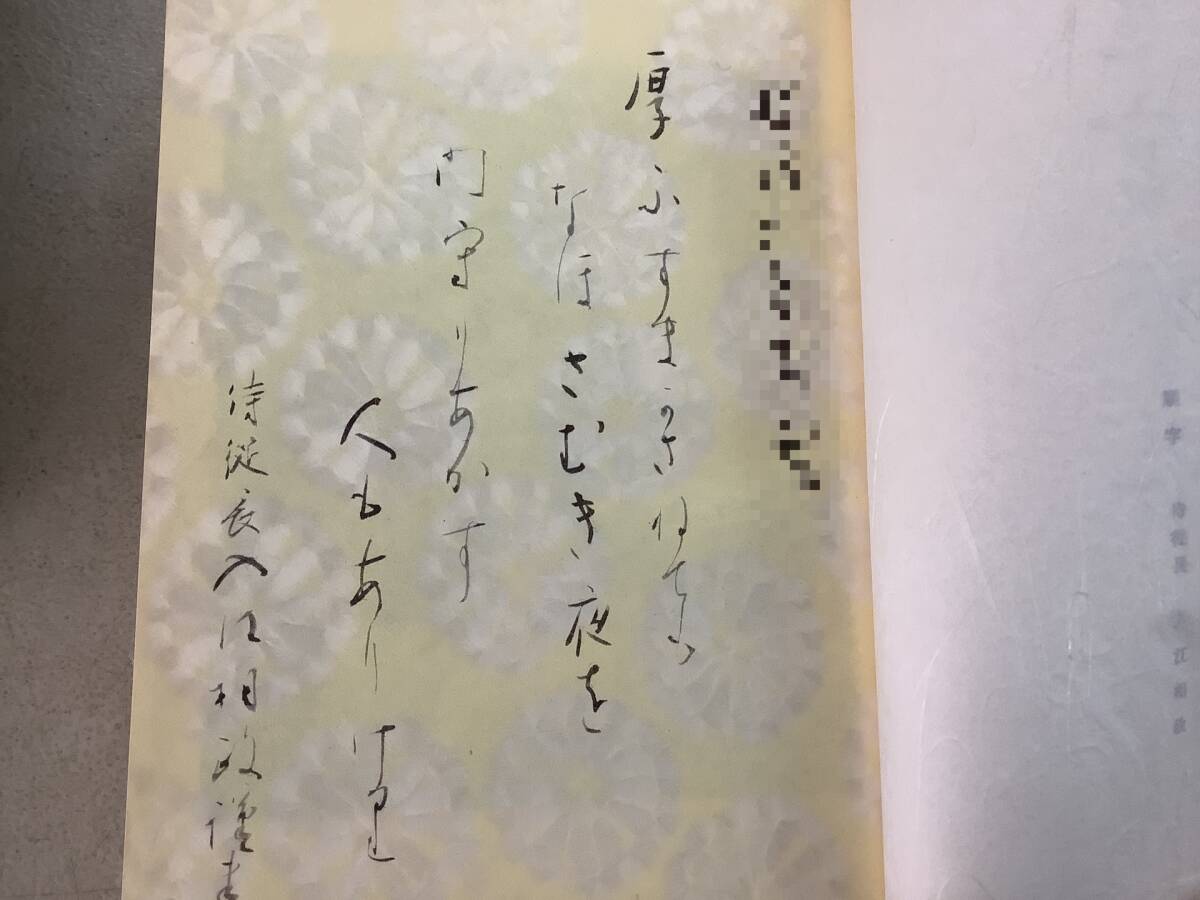 厚ふすまかさねても
なほさむき夜を
門守りあかす
人もありけれ
侍従長入江相政謹書
題字 侍従長 入江相政